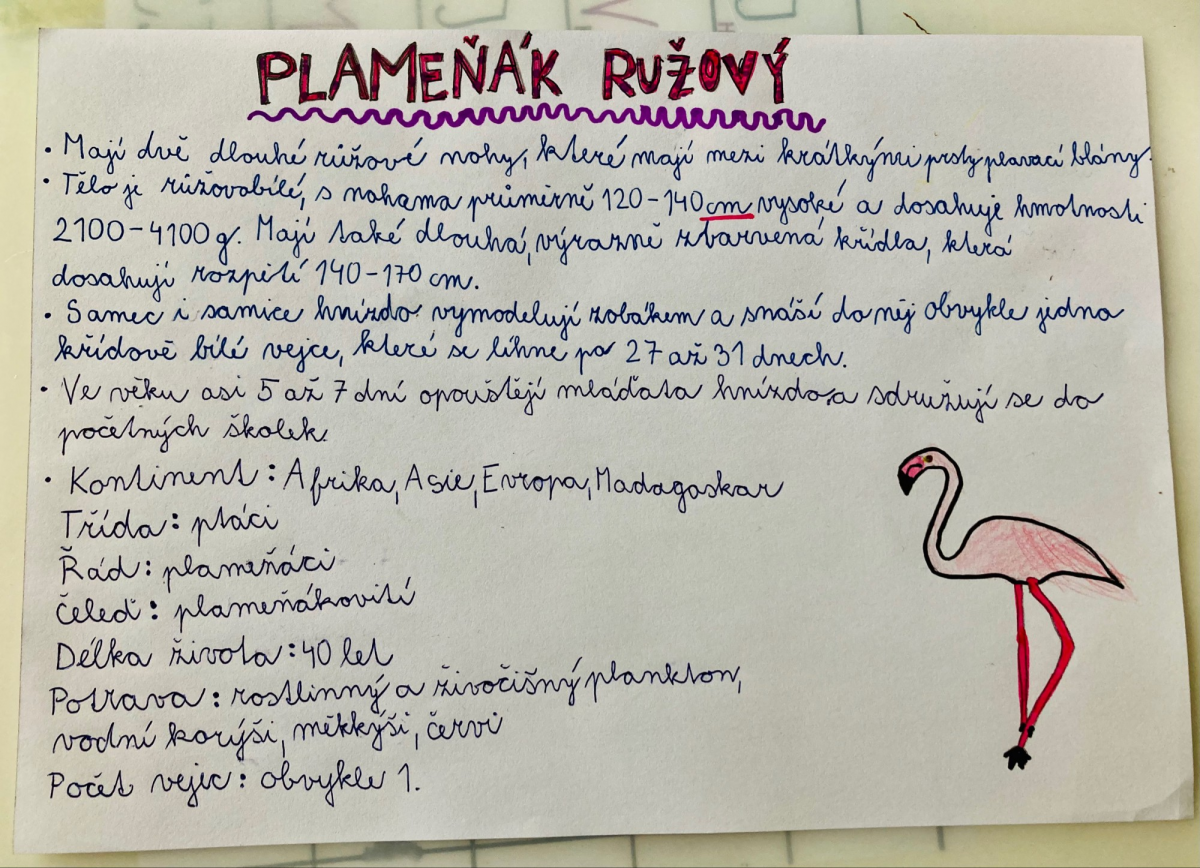 PLAMEŇÁK RUŽOVÝ
• Mají dvě dlouhé růžové nohy, které mají mezi krátkými prsty plavací blány.
• Tělo je růžovobílé, s nohama průměrně 120-140cm vysoké a dosahuje hmotnosti
2100-4100g. Mají také dlouhá, výrazně zbarvená křídla, která
dosahují rozpětí 140-170 cm.
• Samec i samice hnízdo vymodelují zobákem a snáší do něj obvykle jedno
křídově bílé vejce, které se líhne po 27 až 31 dnech.
• Ve věku asi 5 až 7 dní opouštějí mláďata hnízdo a sdružují se do
početných školek.
• Kontinent: Afrika, Asie, Evropa, Madagaskar
Třída: ptáci
Řád: plameňáci
Čeleď: plameňákovití
Délka života: 40 let
Potrava: rostlinný a živočišný plankton,
vodní korýši, měkkýši, červi
Počet vejic: obvykle 1.